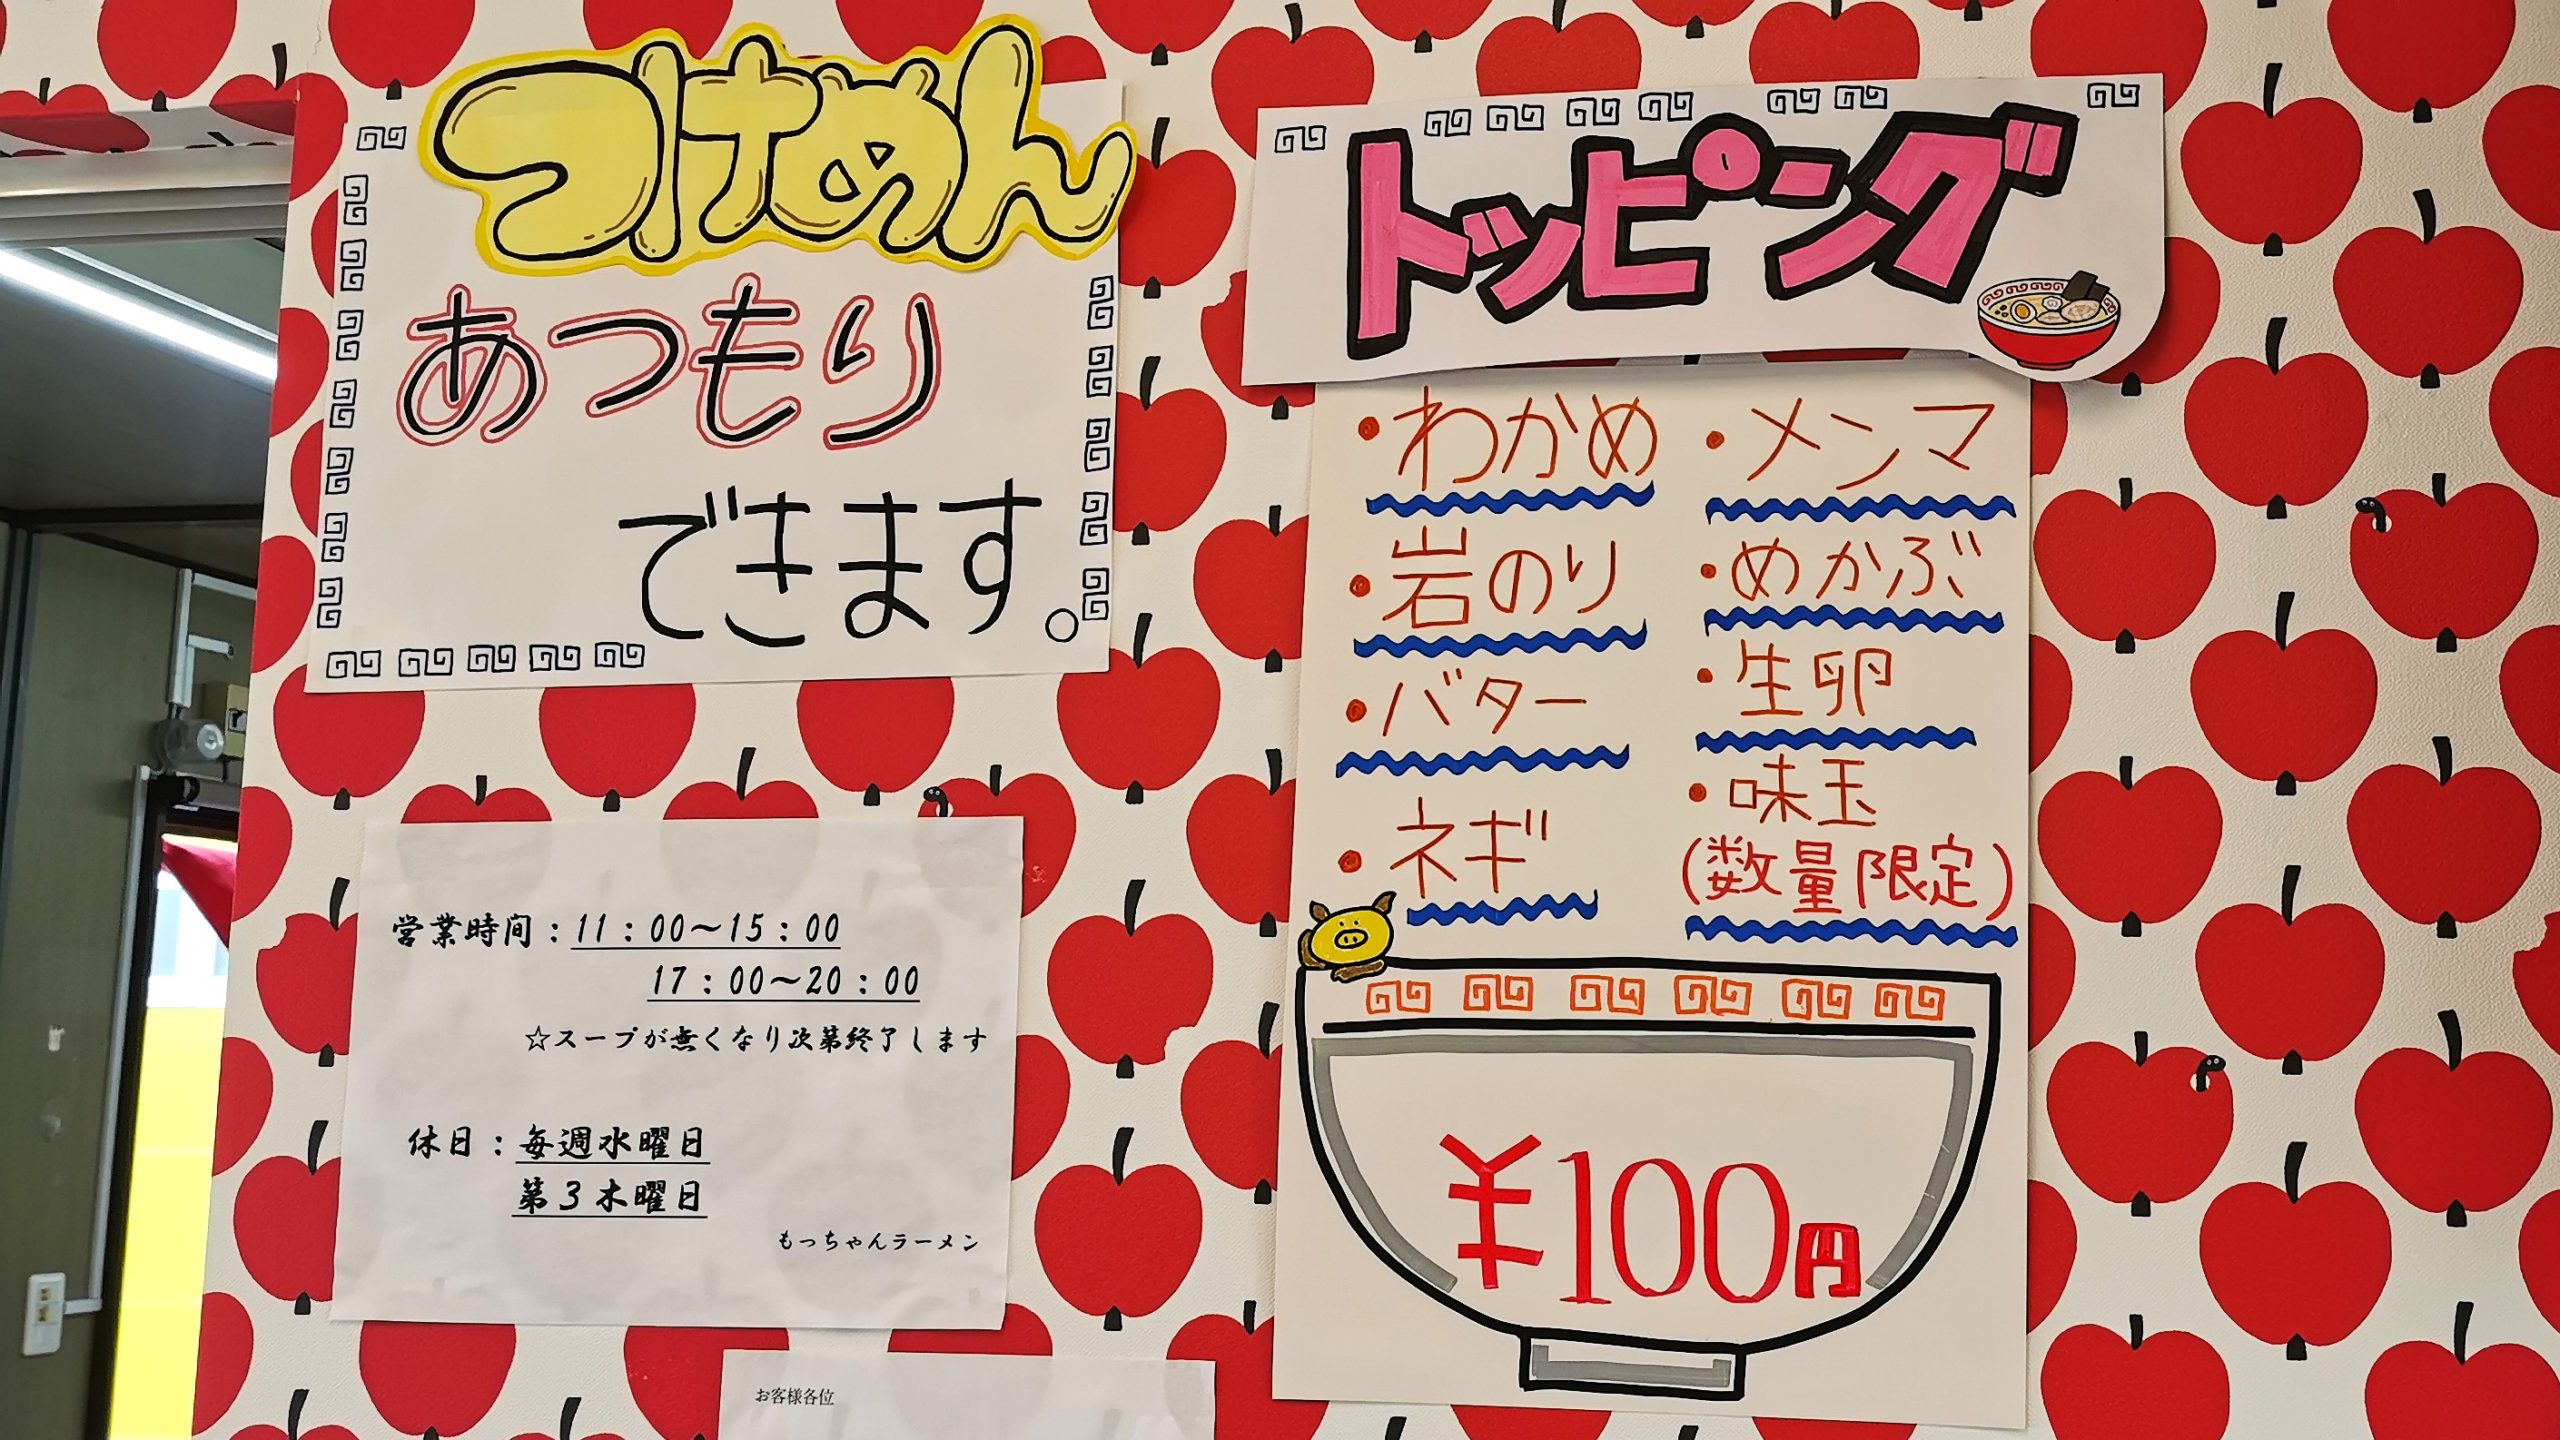 つけめん
あつもり
できます。
営業時間：11：00～15：00
17：00～20：00
☆スープが無くなり次第終了します
休日：毎週水曜日
第３木曜日
もっちゃんラーメン
お客様各位
トッピング
・わかめ
・岩のり
・バター
・ネギ
・メンマ
・めかぶ
・生卵
・味玉
(数量限定)
¥100円